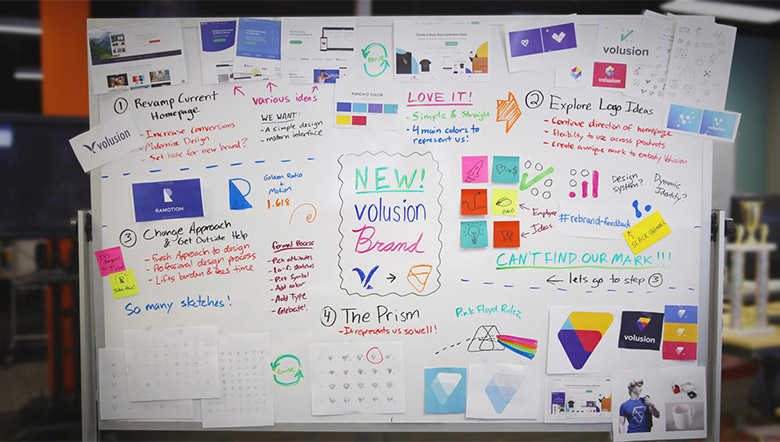 ① Revamp Current
Homepage
- Increase conversions
- Modernize Design
- Set base for new brand?
various ideas
WE WANT:
- A simple design
- modern interface
PUNCH O' COLOR
LOVE IT!
- Simple & Straight
- 4 main colors to
represent us!
② Explore Logo Ideas
- Continue direction of homepage
- Flexibility to use across
products
- Create a unique mark to embody Volusion
volusion
volusion
volusion
RAMOTION
Golden Ratio
+
Motion
1.618
③ Change Approach
& Get Outside Help
- Fresh Approach to design
- Professional design process
- Lifts burden & frees time
So many sketches!
Formal Process
- Pick attributes
- Lo-fi sketches
- Pick symbol
- Add color
- Add Type
- Celebrate!
NEW!
volusion
Brand
Employee
Ideas
Design
system?
Dynamic
Identity?
#rebrand-feedback
CAN'T FIND OUR MARK!!!
← lets go to step ③
④ The Prism
- It represents us so well!
Pink Floyd Rulez
volusion